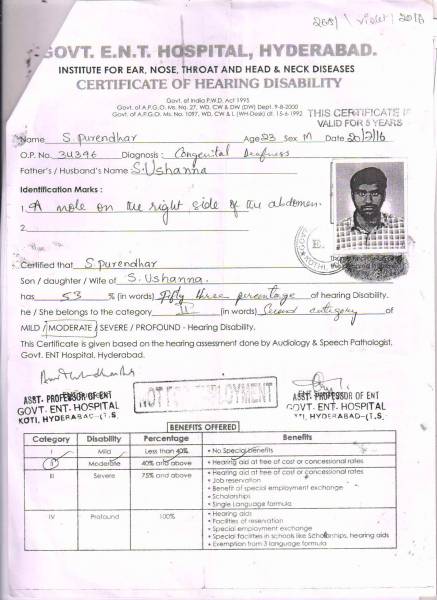 2016
GOVT. E.N.T. HOSPITAL, HYDERABAD.
INSTITUTE FOR EAR, NOSE, THROAT AND HEAD & NECK DISEASES
CERTIFICATE OF HEARING DISABILITY
Govt. of India P.W.D. Act 1995
Govt. of A.P.G.O. Ms. No. 27, WD, CW & DW (DW) Dept. 9-8-2000
Govt. of A.P.G.O. Ms. No. 1097, WD, CW & L (WH-Desk) dt. 15-6-1992
THIS CERTIFICATE
VALID FOR 5 YEARS
Name S. Purendhar Age 23 Sex M Date 20/7/16
O.P. No. 34396 Diagnosis: Congenital Deafness
Father's / Husband's Name S. Ushanna
Identification Marks :
1. A mole on the right side of the abdomen.
2.
Certified that S. Purendhar
Son / daughter / Wife of S. Ushanna.
has 53 % (in words) Fifty three percentage of hearing Disability.
he / She belongs to the category II (in words) Second category of
MILD / MODERATE / SEVERE / PROFOUND - Hearing Disability.
This Certificate is given based on the hearing assessment done by Audiology & Speech Pathologist,
Govt. ENT Hospital, Hyderabad.
ASST. PROFESSOR OF ENT
GOVT. ENT. HOSPITAL
KOTI, HYDERABAD-(T.S.
NOT FOR EMPLOYMENT
ASST. PROFESSOR OF ENT
GOVT. ENT. HOSPITAL
HYDERABAD-(T.S.
BENEFITS OFFERED
Category Disability Percentage Benefits
I Mild Less than 40% • No Special benefits
II Moderate 40% and above • Hearing aid at free of cost or concessional rates
III Severe 75% and above • Hearing aid at free of cost or concessional rates
• Job reservation
• Benefit of special employment exchange
• Scholarships
• Single Language formula
IV Profound 100% • Hearing aids
• Facilities of reservation
• Special employment exchange
• Special facilities in schools like Scholarships, hearing aids
• Exemption from 3 language formula